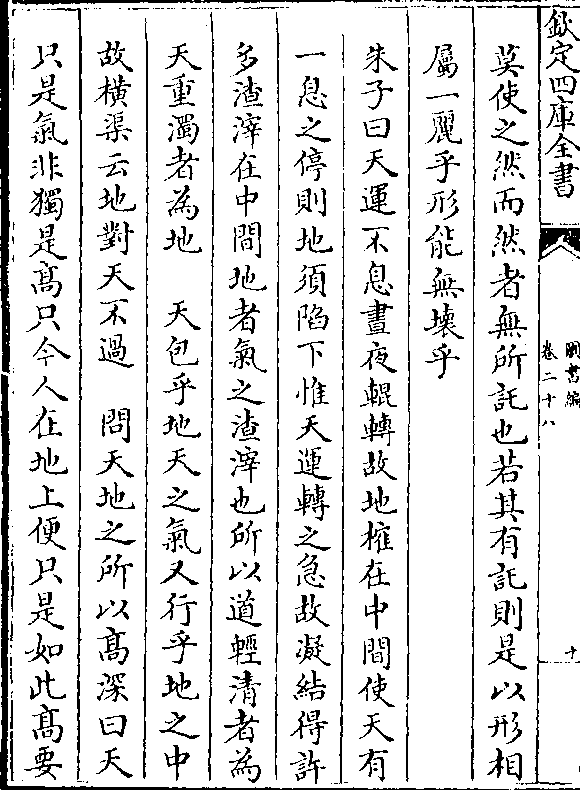 欽定四庫全書
圖書編
卷二十八
十
莫使之然而然者無所託也若其有託則是以形相
屬一麗乎形能無壞乎
朱子曰天運不息晝夜輥轉故地搉在中間使天有
一息之停則地須陷下惟天運轉之急故凝結得許
多渣滓在中間地者氣之渣滓也所以道輕清者為
天重濁者為地　天包乎地天之氣又行乎地之中
故橫渠云地對天不過　問天地之所以髙深曰天
只是氣非獨是髙只今人在地上便只是如此髙要